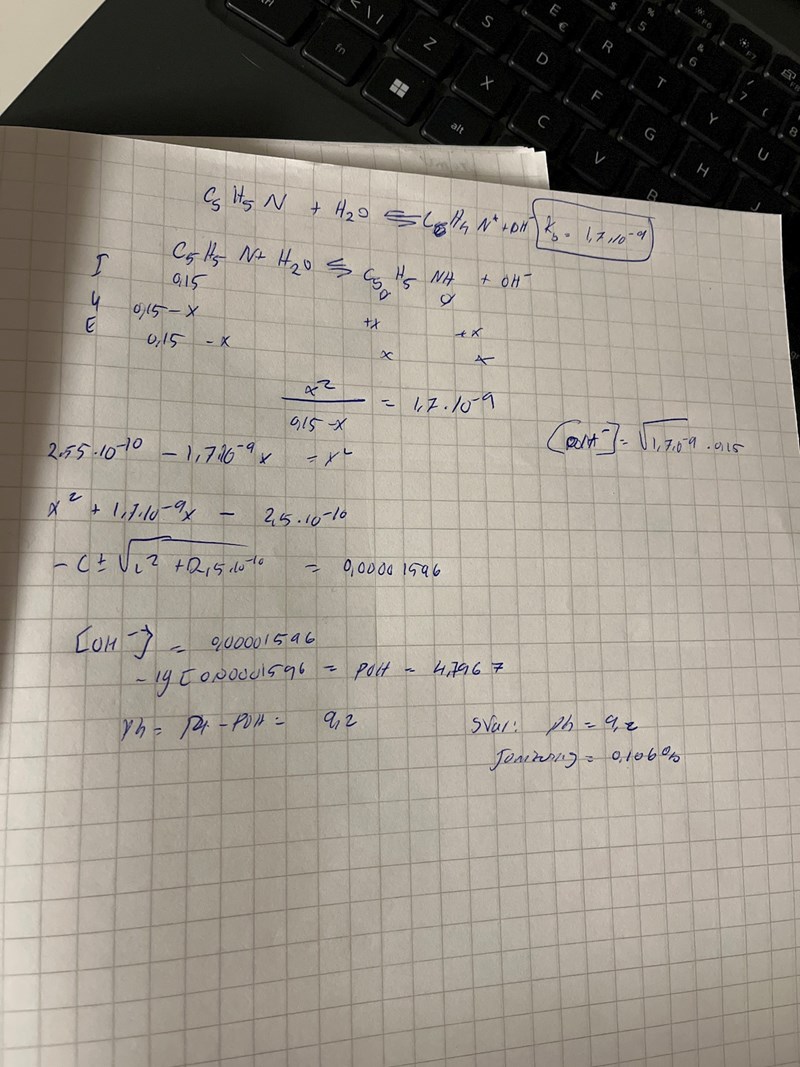 fn
alt
Z
X
C
V
B
S
D
F
G
H
J
E
€
R
T
Y
U
$
%
5
&
6
7
(
8
C5 H5 N + H2O ⇌ C5 H4 N+ + OH- Kb = 1,7.10-9
I C5 H5 N + H2O ⇌ C5 H5 NH + OH-
0,15 0 0
Ä 0,15 - x +x +x
E 0,15 - x x x
x²/0,15-x = 1,7.10-9
[OH-] = √1,7.10-9 . 0,15
2.55.10-10 - 1,7.10-9 x = x²
x² + 1,7.10-9 x - 2,5.10-10
- C ± √C² + 2,5.10-10 = 0,00001596
[OH-] = 0,00001596
-lg[0,00001596 = POH = 4,7967
Ph = 14 - POH = 9,2
Svar: Ph = 9,2
Jonisering = 0,106%